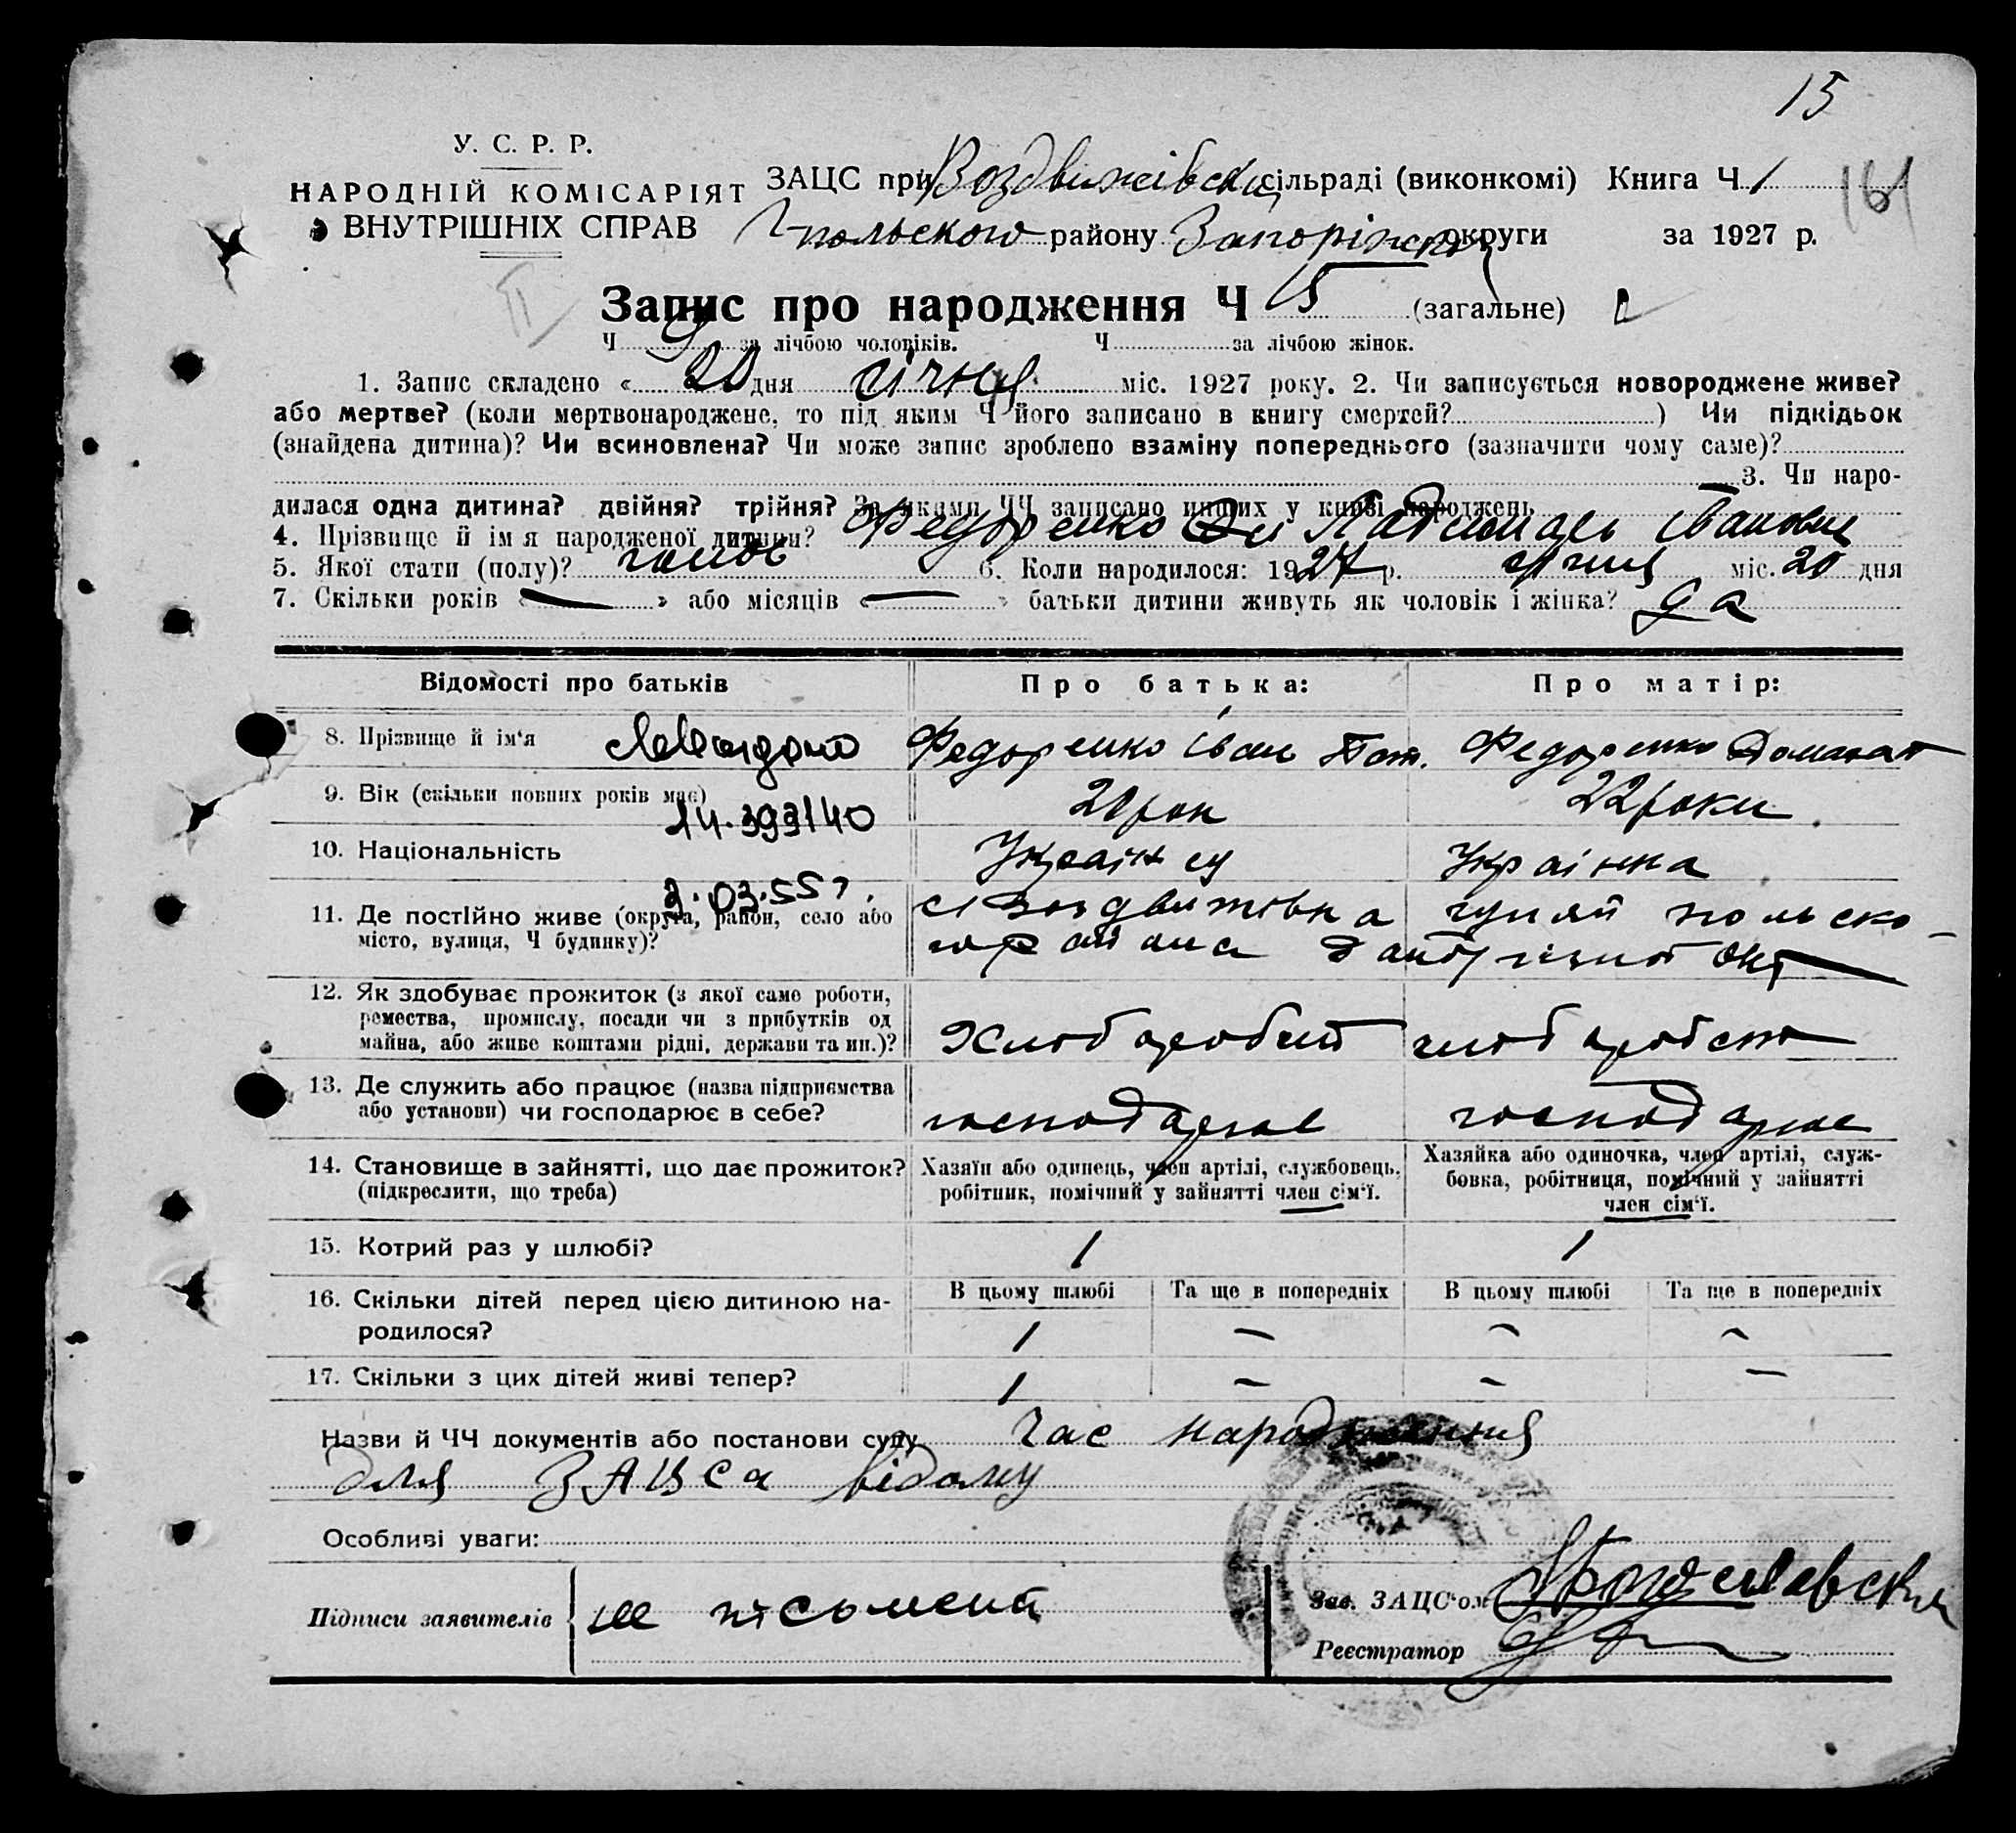 15
У. С. Р. Р.
НАРОДНІЙ КОМІСАРІЯТ
ВНУТРІШНІХ СПРАВ
ЗАЦС при Воздвижівскій сільраді (виконкомі) Книга Ч 1
161
польского району Запоріжской округи за 1927 р.
Запис про народження Ч 15 (загальне)
Ч 9 за лічбою чоловіків. Ч за лічбою жінок.
1. Запис складено « 20 дня січня міс. 1927 року. 2. Чи записується новороджене живе?
або мертве? (коли мертвонароджене, то під яким Ч його записано в книгу смертей? ) Чи підкідьок
(знайдена дитина)? Чи всиновлена? Чи може запис зроблено взаміну попереднього (зазначити чому саме)?
3. Чи наро-
дилася одна дитина? двійня? трійня? За якими ЧЧ записано инших у книзі народжень
4. Прізвище й ім я народженої дитини? Федоренко Іванович
5. Якої стати (полу)? 6. Коли народилося: 1927 р. січня міс. 20 дня
7. Скільки років « — » або місяців « — » батьки дитини живуть як чоловік і жінка? да
Відомості про батьків Про батька: Про матір:
8. Прізвище й ім'я Федоренко Іван Пот. Федоренко
9. Вік (скільки повних років має) 14.393140 21 рок 22 роки
10. Національність Украінец Украінка
2.03.55г.
11. Де постійно живе (округа, район, село або с Воздвижівка гуляй польско-
місто, вулиця, Ч будинку)? го района Запоріжской окр
12. Як здобуває прожиток (з якої саме роботи,
ремества, промислу, посади чи з прибутків од
майна, або живе коштами рідні, держави та ин.)? Хлібороб
13. Де служить або працює (назва підприємства
або установи) чи господарює в себе? господарює господарює
14. Становище в зайнятті, що дає прожиток?
(підкреслити, що треба)
Хазяїн або одинець, член артілі, службовець,
робітник, помічний у зайнятті член сім'ї.
Хазяйка або одиночка, член артілі, служ-
бовка, робітниця, помічний у зайнятті
член сім'ї.
15. Котрий раз у шлюбі? 1 1
16. Скільки дітей перед цією дитиною на-
родилося?
В цьому шлюбі Та ще в попередніх В цьому шлюбі Та ще в попередніх
1 — — —
17. Скільки з цих дітей живі тепер? 1 — — —
Назви й ЧЧ документів або постанови суду Час народження
для ЗАЦСа відому
Особливі уваги:
Підписи заявителів не письмений
Зав. ЗАЦС'ом
Реєстратор